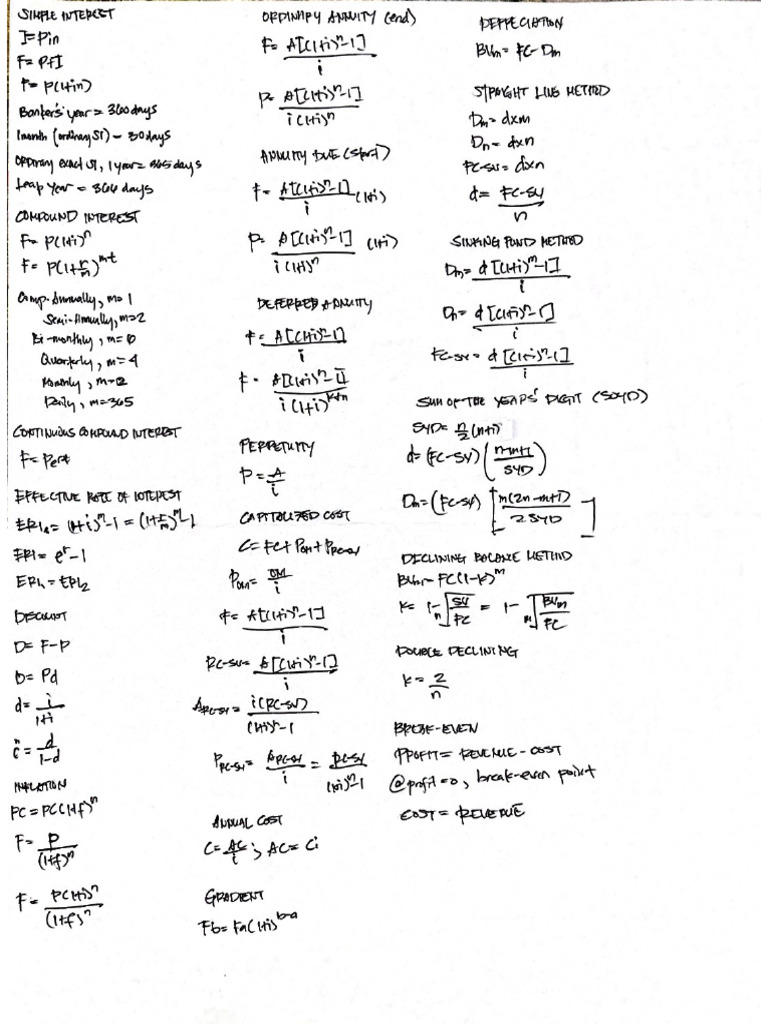 SIMPLE INTEREST
I=Pin
F=P+I
F=P(1+in)
Banker's year = 360 days
1 month (ordinary SI) - 30 days
ordinary exact SI, 1 year = 365 days
Leap Year = 366 days
COMPOUND INTEREST
F=P(1+i)^n
F=P(1+r/m)^mt
Comp. Annually, m=1
Semi-Annually, m=2
Bi-monthly, m=6
Quarterly, m=4
Monthly, m=12
Daily, m=365
CONTINUOUS COMPOUND INTEREST
F=Pe^rt
EFFECTIVE RATE OF INTEREST
= (1+i)^n-1 = (1+r/m)^m-1
ERI = e^r-1
ERI1 = ERI2
DISCOUNT
D=F-P
D=Fd
d= i/1+i
i= d/1-d
INFLATION
FC=PC(1+f)^n
F= P/(1+f)^n
F= P(1+i)^n/(1+f)^n
ORDINARY ANNUITY (end)
F= A[(1+i)^n-1]/i
P= A[(1+i)^n-1]/i(1+i)^n
ANNUITY DUE (start)
F= A[(1+i)^n-1]/i (1+i)
P= A[(1+i)^n-1]/i(1+i)^n (1+i)
DEFERRED ANNUITY
F= A[(1+i)^n-1]/i
P= A[(1+i)^n-1]/i(1+i)^k+n
PERPETUITY
P= A/i
CAPITALIZED COST
C=FC+Pom+Prc-sv
Pom= OM/i
F= A[(1+i)^n-1]/i
RC-SV= A[(1+i)^n-1]/i
Arc-sv= i(RC-SV)/(1+i)^n-1
Prc-sv= Arc-sv/i = RC-SV/(1+i)^n-1
ANNUAL COST
C= AC/i ; AC= Ci
GRADIENT
Fb=Fa(1+i)^b-a
DEPRECIATION
BVm= FC-Dm
STRAIGHT LINE METHOD
Dm=dxm
Dn=dxn
FC-SV=dxn
d= FC-SV/n
SINKING FUND METHOD
Dm= d[(1+i)^m-1]/i
Dn= d[(1+i)^n-1]/i
FC-SV= d[(1+i)^n-1]/i
SUM OF THE YEARS' DIGIT (SOYD)
SYD= n/2 (n+1)
d=(FC-SV)(n-m+1/SYD)
Dm=(FC-SV)[m(2n-m+1)/2SYD]
DECLINING BALANCE METHOD
BVm=FC(1-k)^m
k= 1-n√SV/FC = 1-m√BVm/FC
DOUBLE DECLINING
k= 2/n
BREAK-EVEN
PROFIT= REVENUE-COST
@profit=0, break-even point
COST= REVENUE